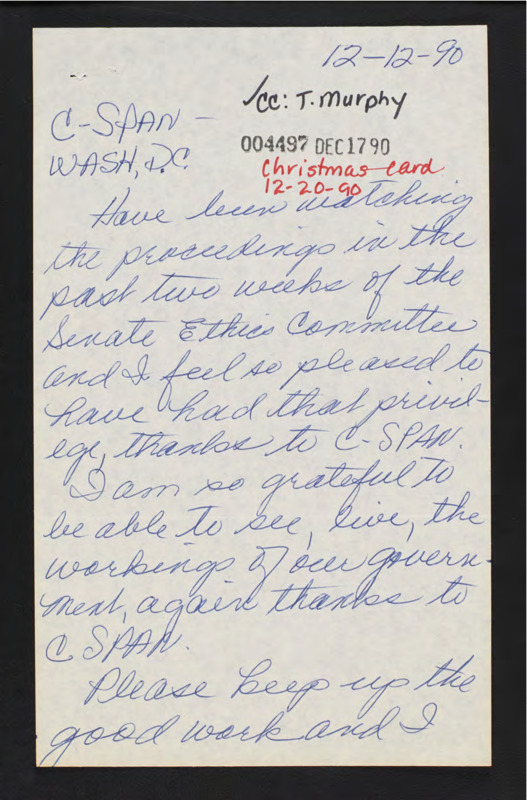 12-12-90
✓cc: T. Murphy
C-SPAN -
WASH, D.C.
004497 DEC1790
Christmas card
12-20-90
Have been watching
the proceedings in the
past two weeks of the
Senate Ethics Committee
and I feel so pleased to
have had that privil-
ege, thanks to C-SPAN.
I am so grateful to
be able to see, live, the
workings of our govern-
ment, again thanks to
C SPAN.
Please keep up the
good work and I